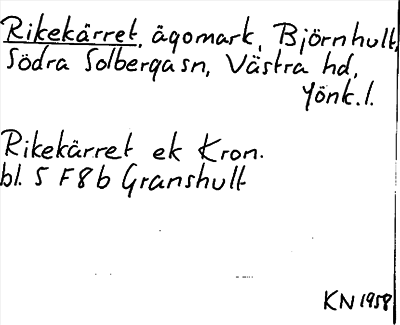 Rikekärret, ägomark, Björnhult,
Södra Solberga sn, Västra hd,
Jönk.l.
Rikekärret ek Kron.
bl. 5 F8b Granshult
KN 1958